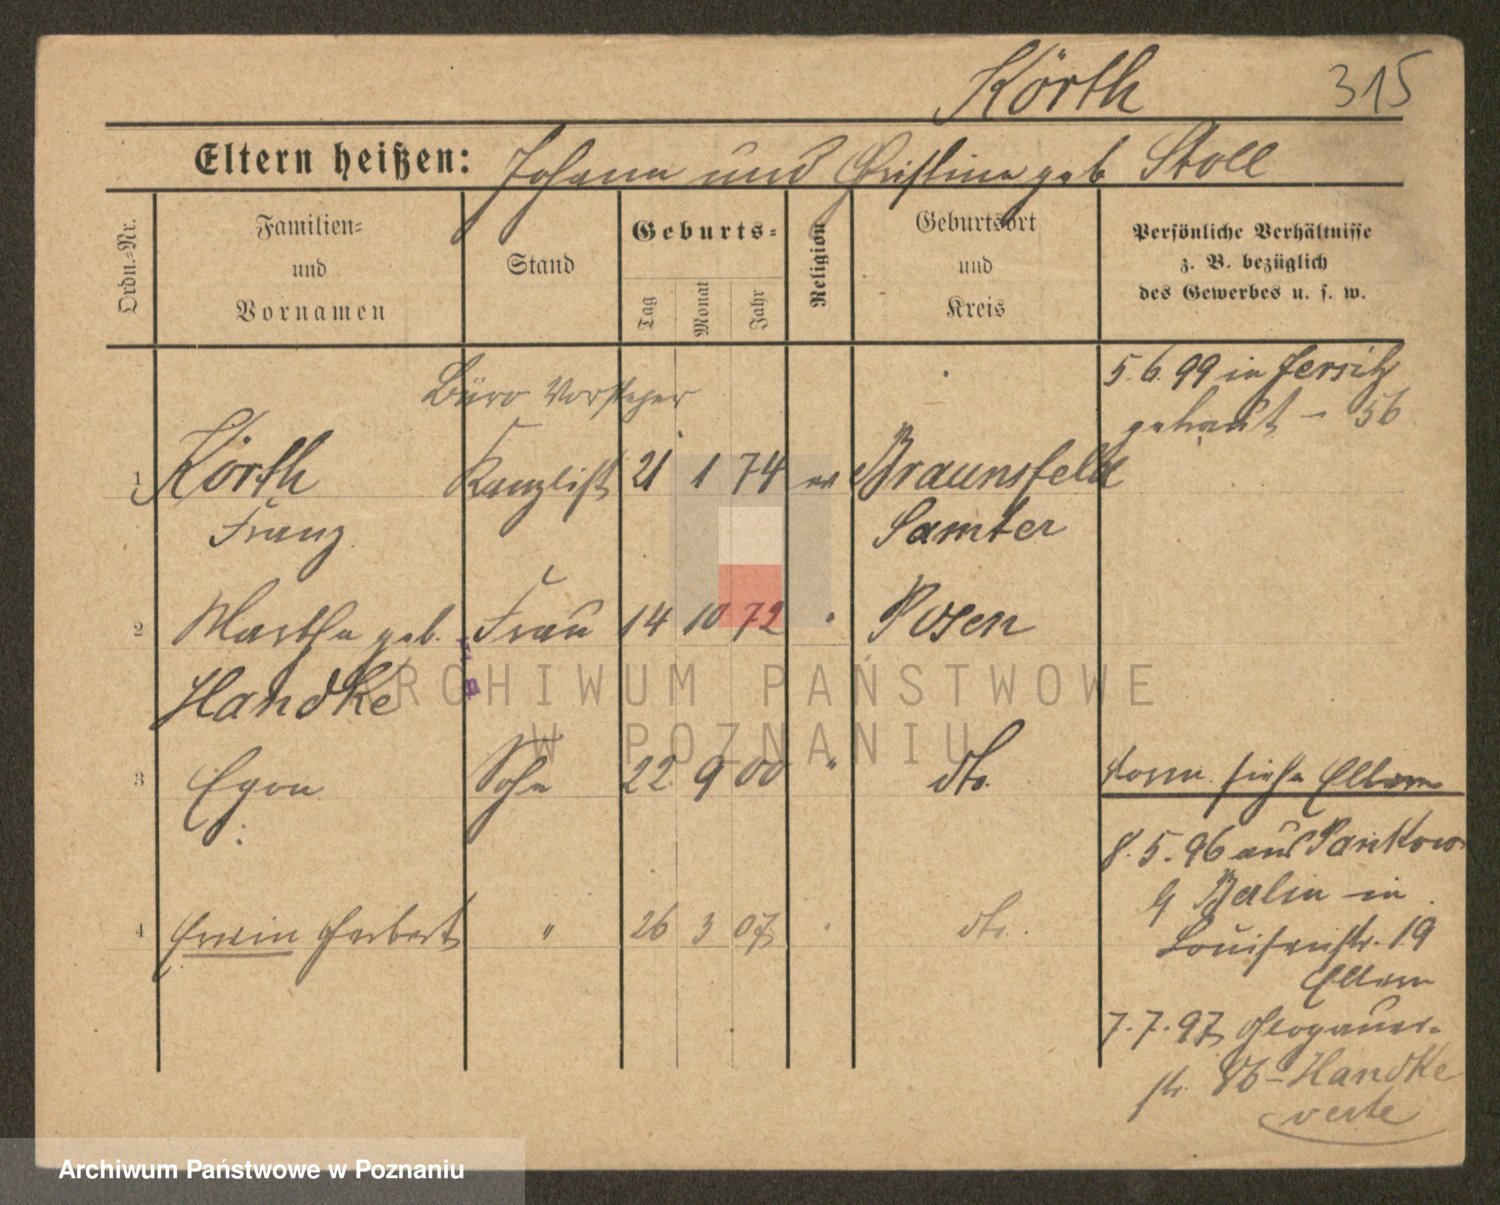 Körth 315
Eltern heißen: Johann und Christine geb Stoll
Ordn.-Nr.
Familien-
und
Vornamen
Stand
Geburts-
Tag
Monat
Jahr
Religion
Geburtsort
und
Kreis
Persönliche Verhältnisse
z. B. bezüglich
des Gewerbes u. s. w.
5.6.99 in Jersitz
getraut - 56
Büro Vorsteher
1 Körth Kanzlist 21 1 74 ev Braunsfeld
Franz Samter
2 Martha geb. Frau 14 10 72 " Posen
Handke
3 Egon Sohn 22 9 00 " dto.
4 Erwin Herbert " 26 3 07 " dto.
vorm. siehe Eltern
8.5.96 aus Pankow
b/ Berlin - in
Louisenstr. 19
Eltern
7.7.97 Glogauer-
str. 86 - Handke
verte
ARCHIWUM PAŃSTWOWE
W POZNANIU
Archiwum Państwowe w Poznaniu